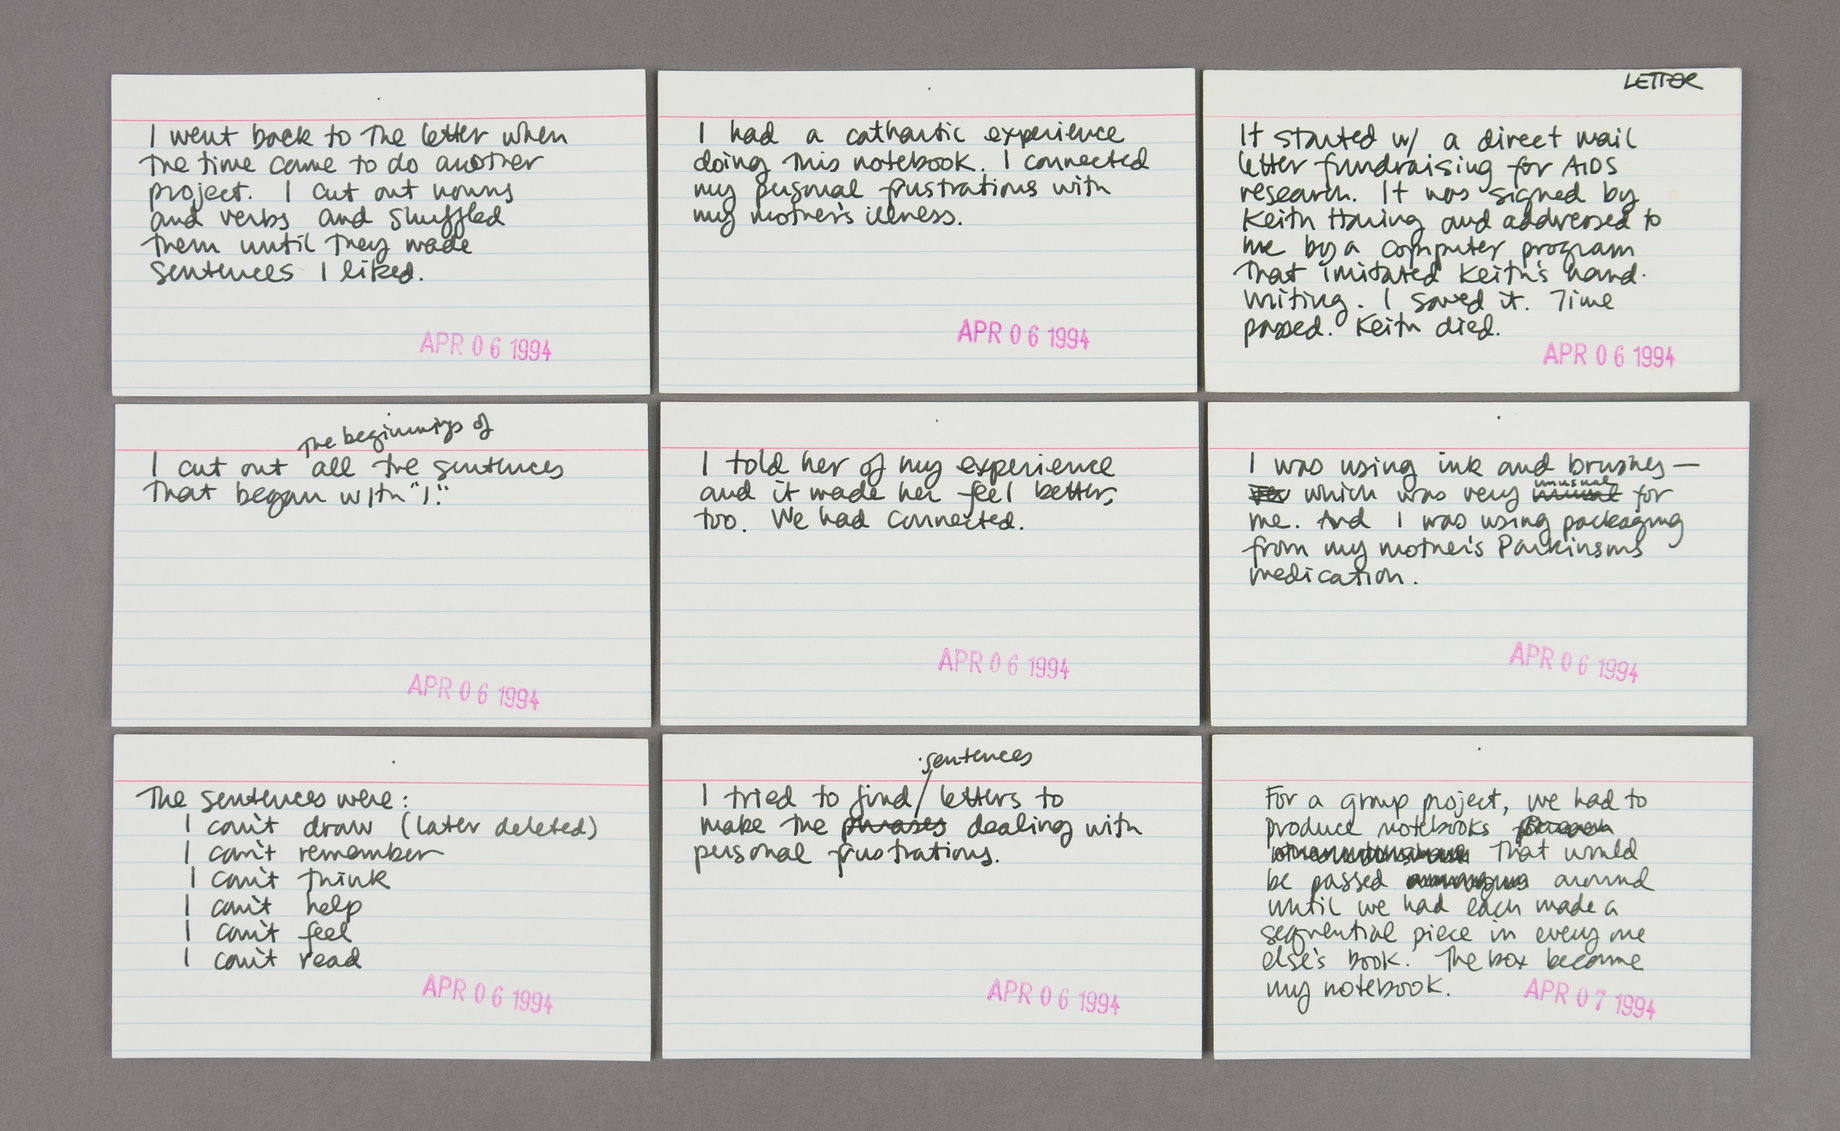 I went back to the letter when
the time came to do another
project. I cut out nouns
and verbs and shuffled
them until they made
sentences I liked.
APR 06 1994
I had a cathartic experience
doing this notebook. I connected
my personal frustrations with
my mother's illness.
APR 06 1994
LETTER
It started w/ a direct mail
letter fundraising for AIDS
research. It was signed by
Keith Haring and addressed to
me by a computer program
that imitated Keith's hand-
writing. I saved it. Time
passed. Keith died.
APR 06 1994
the beginnings of
I cut out all the sentences
that began with "I."
APR 06 1994
I told her of my experience
and it made her feel better,
too. We had connected.
APR 06 1994
I was using ink and brushes—
which was very unusual for
me. And I was using packaging
from my mother's Parkinsons
medication.
APR 06 1994
The sentences were:
I can't draw (later deleted)
I can't remember
I can't think
I can't help
I can't feel
I can't read
APR 06 1994
sentences
I tried to find / letters to
make the phrases dealing with
personal frustrations.
APR 06 1994
For a group project, we had to
produce notebooks
that would
be passed around
until we had each made a
sequential piece in everyone
else's book. The box became
my notebook.
APR 07 1994